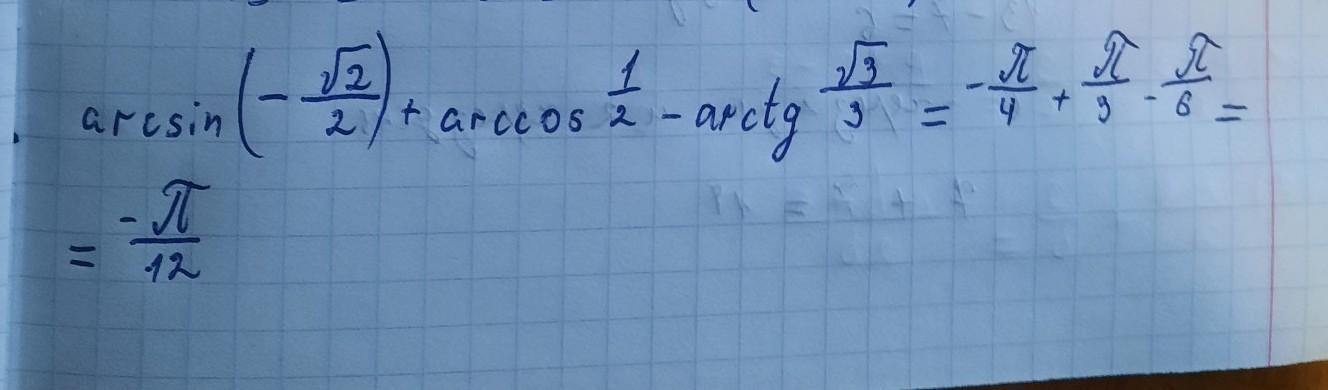 arcsin(-√2/2) + arccos 1/2 - arctg √3/3 = -π/4 + π/3 - π/6 =
= -π/12